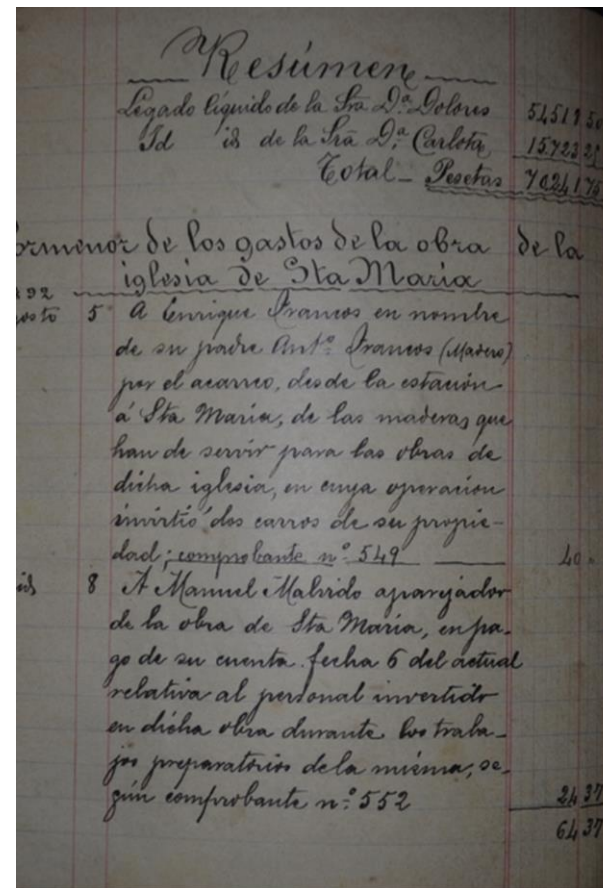 Resúmen
Légado líquido de la Sra Dª Dolores 54519 50
Id id de la Sra Dª Carlota 15.723 25
Total - Pesetas 70241 75
ormenor de los gastos de la obra de la
iglesia de Sta Maria
892
gosto 5 A Enrique Francos en nombre
de su padre Antº Francos (Madero)
por el acarreo, desde la estación
á Sta Maria, de las maderas que
han de servir para las obras de
dicha iglesia, en cuya operación
invirtió dos carros de su propie-
dad; comprobante nº 549 40 "
id 8 A Manuel Malvido aparejador
de la obra de Sta Maria, en pa-
go de su cuenta fecha 6 del actual
relativa al personal invertido
en dicha obra durante los traba-
jos preparatorios de la misma, se-
gún comprobante nº 552 24 37
64 37